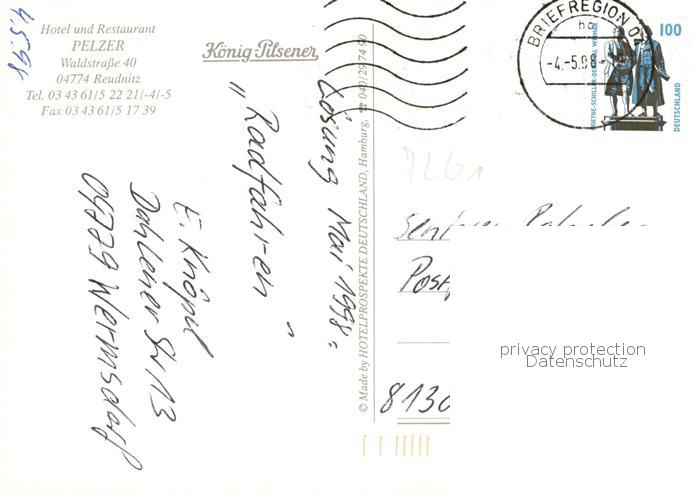 4.5.98
Hotel und Restaurant
PELZER
Waldstraße 40
04774 Reudnitz
Tel. 03 43 61/5 22 21/-4/-5
Fax 03 43 61/5 17 39
König Pilsener
© Made by HOTELPROSPEKTE DEUTSCHLAND, Hamburg, ☎ 040/29 74 90
Lösung Mai '1998:
„Radfahren"
E. Knöpel
Dahlener Str. 13
09779 Wermsdorf
BRIEFREGION 0
-4.-5.98-
100
GOETHE-SCHILLER-DENKMAL WEIMAR
DEUTSCHLAND
Post
8130
privacy protection
Datenschutz